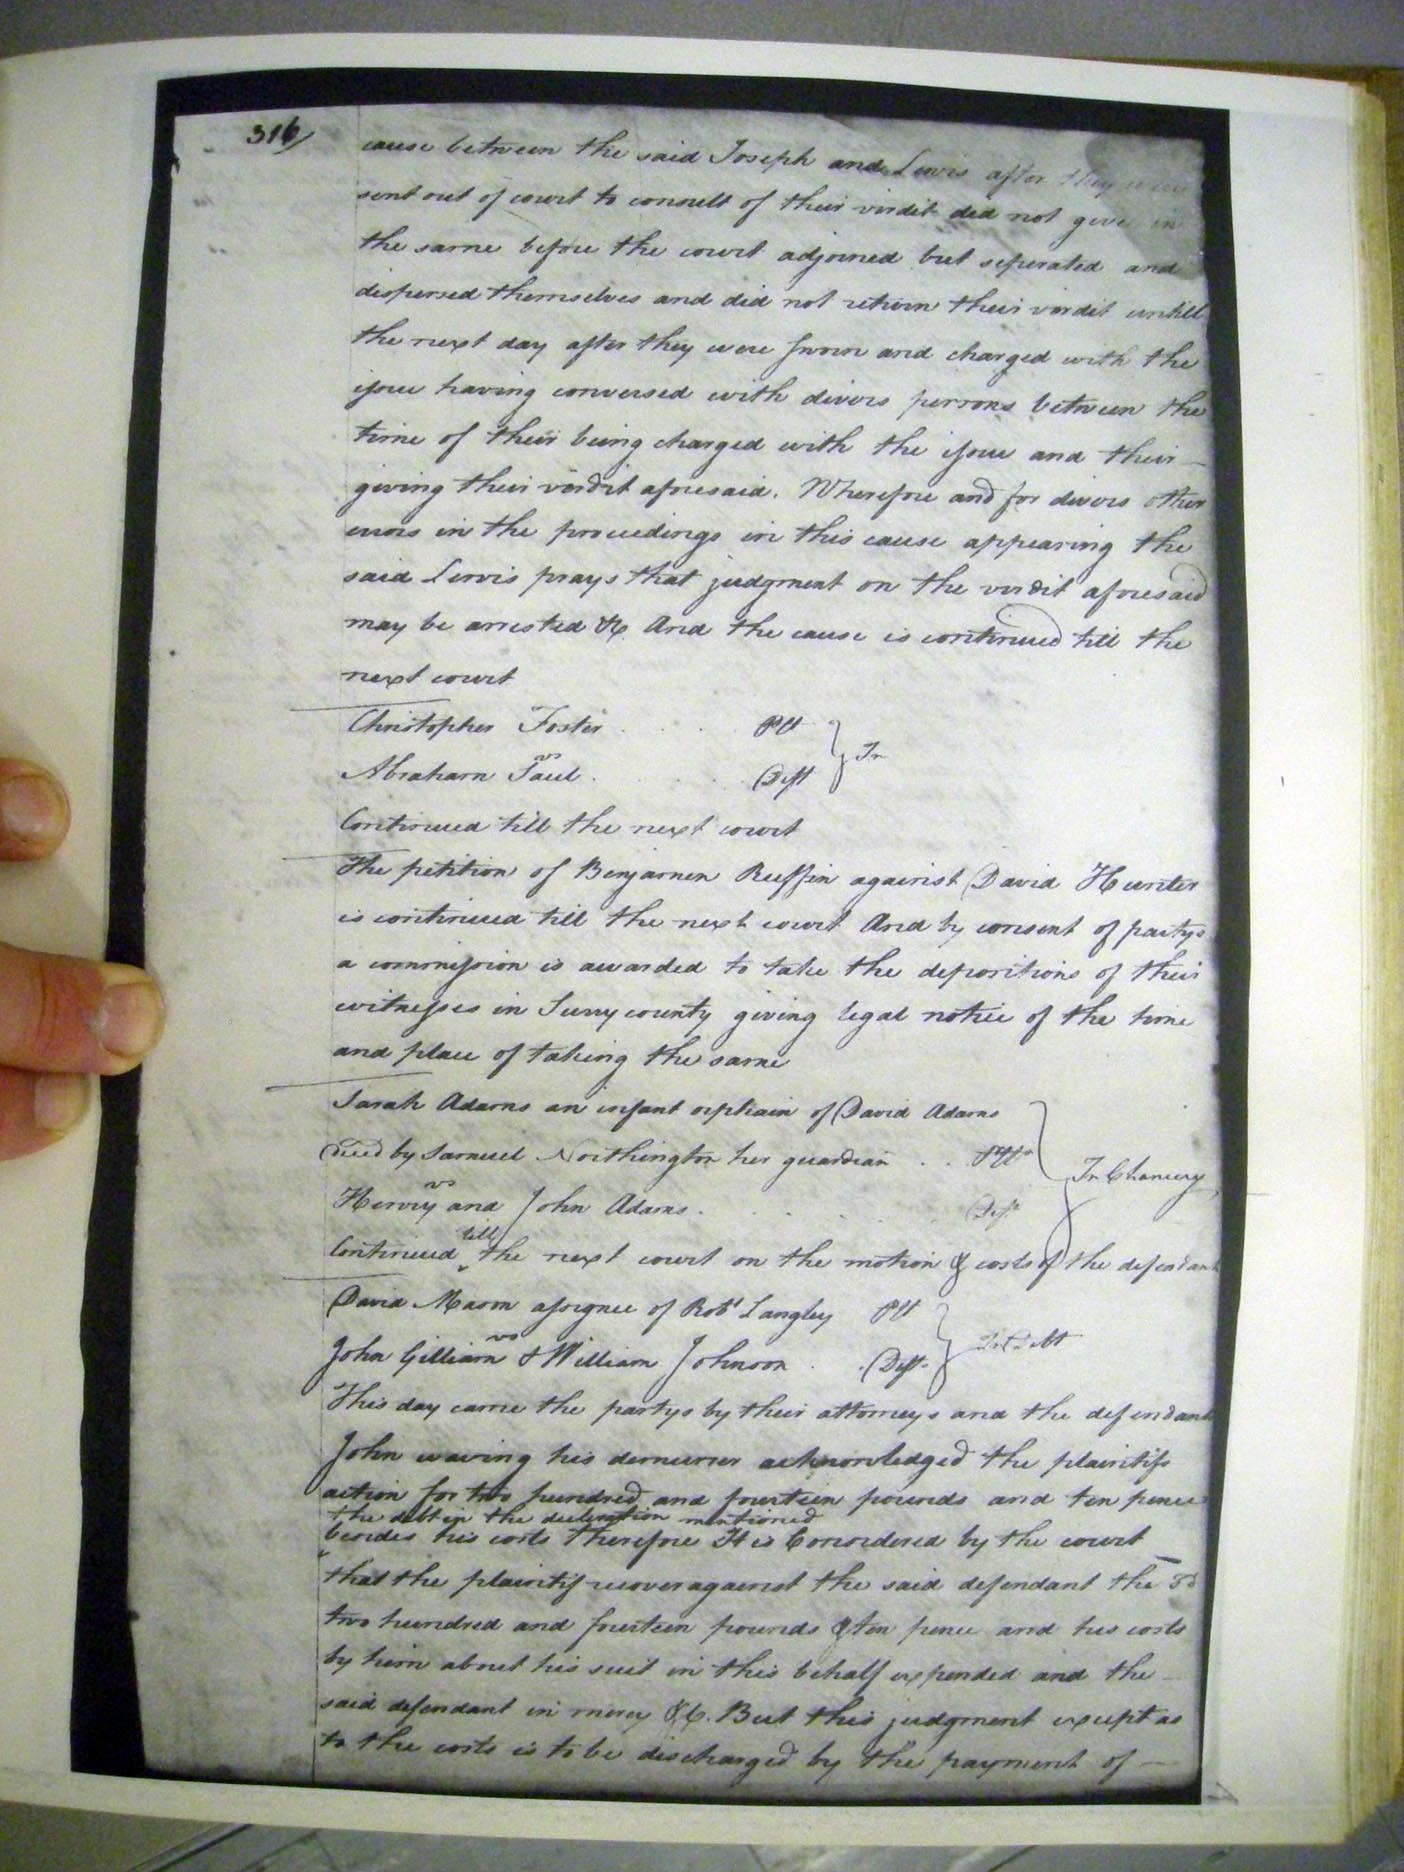 316
cause between the said Joseph and Lewis after they were
sent out of court to consult of their virdit did not give in
the same before the court adjorned but seperated and
dispersed themselves and did not return their virdit untill
the next day after they were sworn and charged with the
issue having conversed with divers persons between the
time of their being charged with the issue and their —
giving their virdit aforesaid. Wherefore and for divers other
errors in the proceedings in this cause appearing the
said Lewis prays that judgment on the virdit aforesaid
may be arrested &c. And the cause is continued till the
next court
Christopher Foster . . . . Plt
vs } In
Abraham Saul . . . . Deft
Continued till the next court
The petition of Benjamen Ruffin against David Hunter
is continued till the next court And by consent of partys
a commission is awarded to take the depositions of their
witnesses in Surry county giving legal notice of the time
and place of taking the same
Sarah Adams an infant orphain of David Adams
decd by Samuel Northington her guardian . . Plt
vs } In Chancery
Hervey and John Adams . . . . . Defts
Continued till the next court on the motion & costs of the defendants
David Mason assignee of Robt Langley Plt
vs } In Debt
John Gilliam & William Johnson . . Defts
This day came the partys by their attorneys and the defendant
John waving his demurrer acknowledged the plaintifs
action for two hundred and fourteen pounds and ten pence
the debt in the decleration mentioned
besides his costs therefore It is Considered by the court —
that the plaintif recover against the said defendant the sd
two hundred and fourteen pounds & ten pence and his costs
by him about his suit in this behalf expended and the —
said defendant in mercy &c. But this judgment except as
to the costs is to be discharged by the payment of —